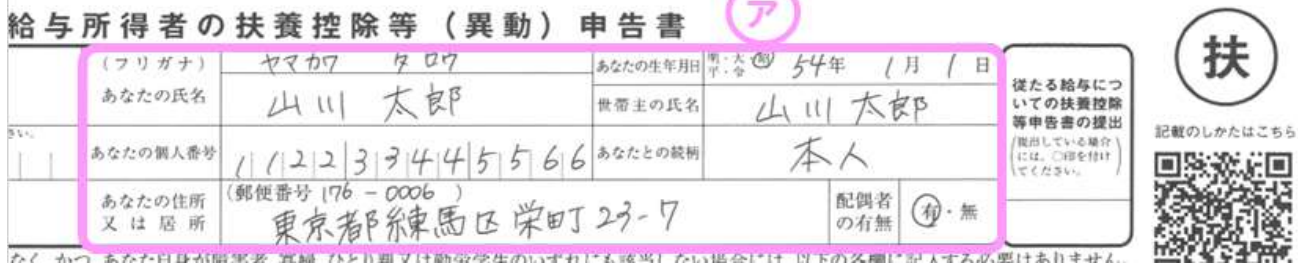 給与所得者の扶養控除等(異動)申告書
ア
扶
(フリガナ) ヤマカワ タロウ
あなたの氏名 山川 太郎
あなたの生年月日 明・大・昭 平・令 54年 1月 1日
世帯主の氏名 山川 太郎
あなたの個人番号 112233445566
あなたとの続柄 本人
あなたの住所又は居所 (郵便番号 176-0006)
東京都練馬区栄町23-7
配偶者の有無 有・無
従たる給与につ
いての扶養控除
等申告書の提出
(提出している場合
には、○印を付け
てください。)
記載のしかたはこちら
なく、かつ、あなた自身が障害者、寡婦、ひとり親又は勤労学生のいずれにも該当しない場合には、以下の各欄に記入する必要はありません。